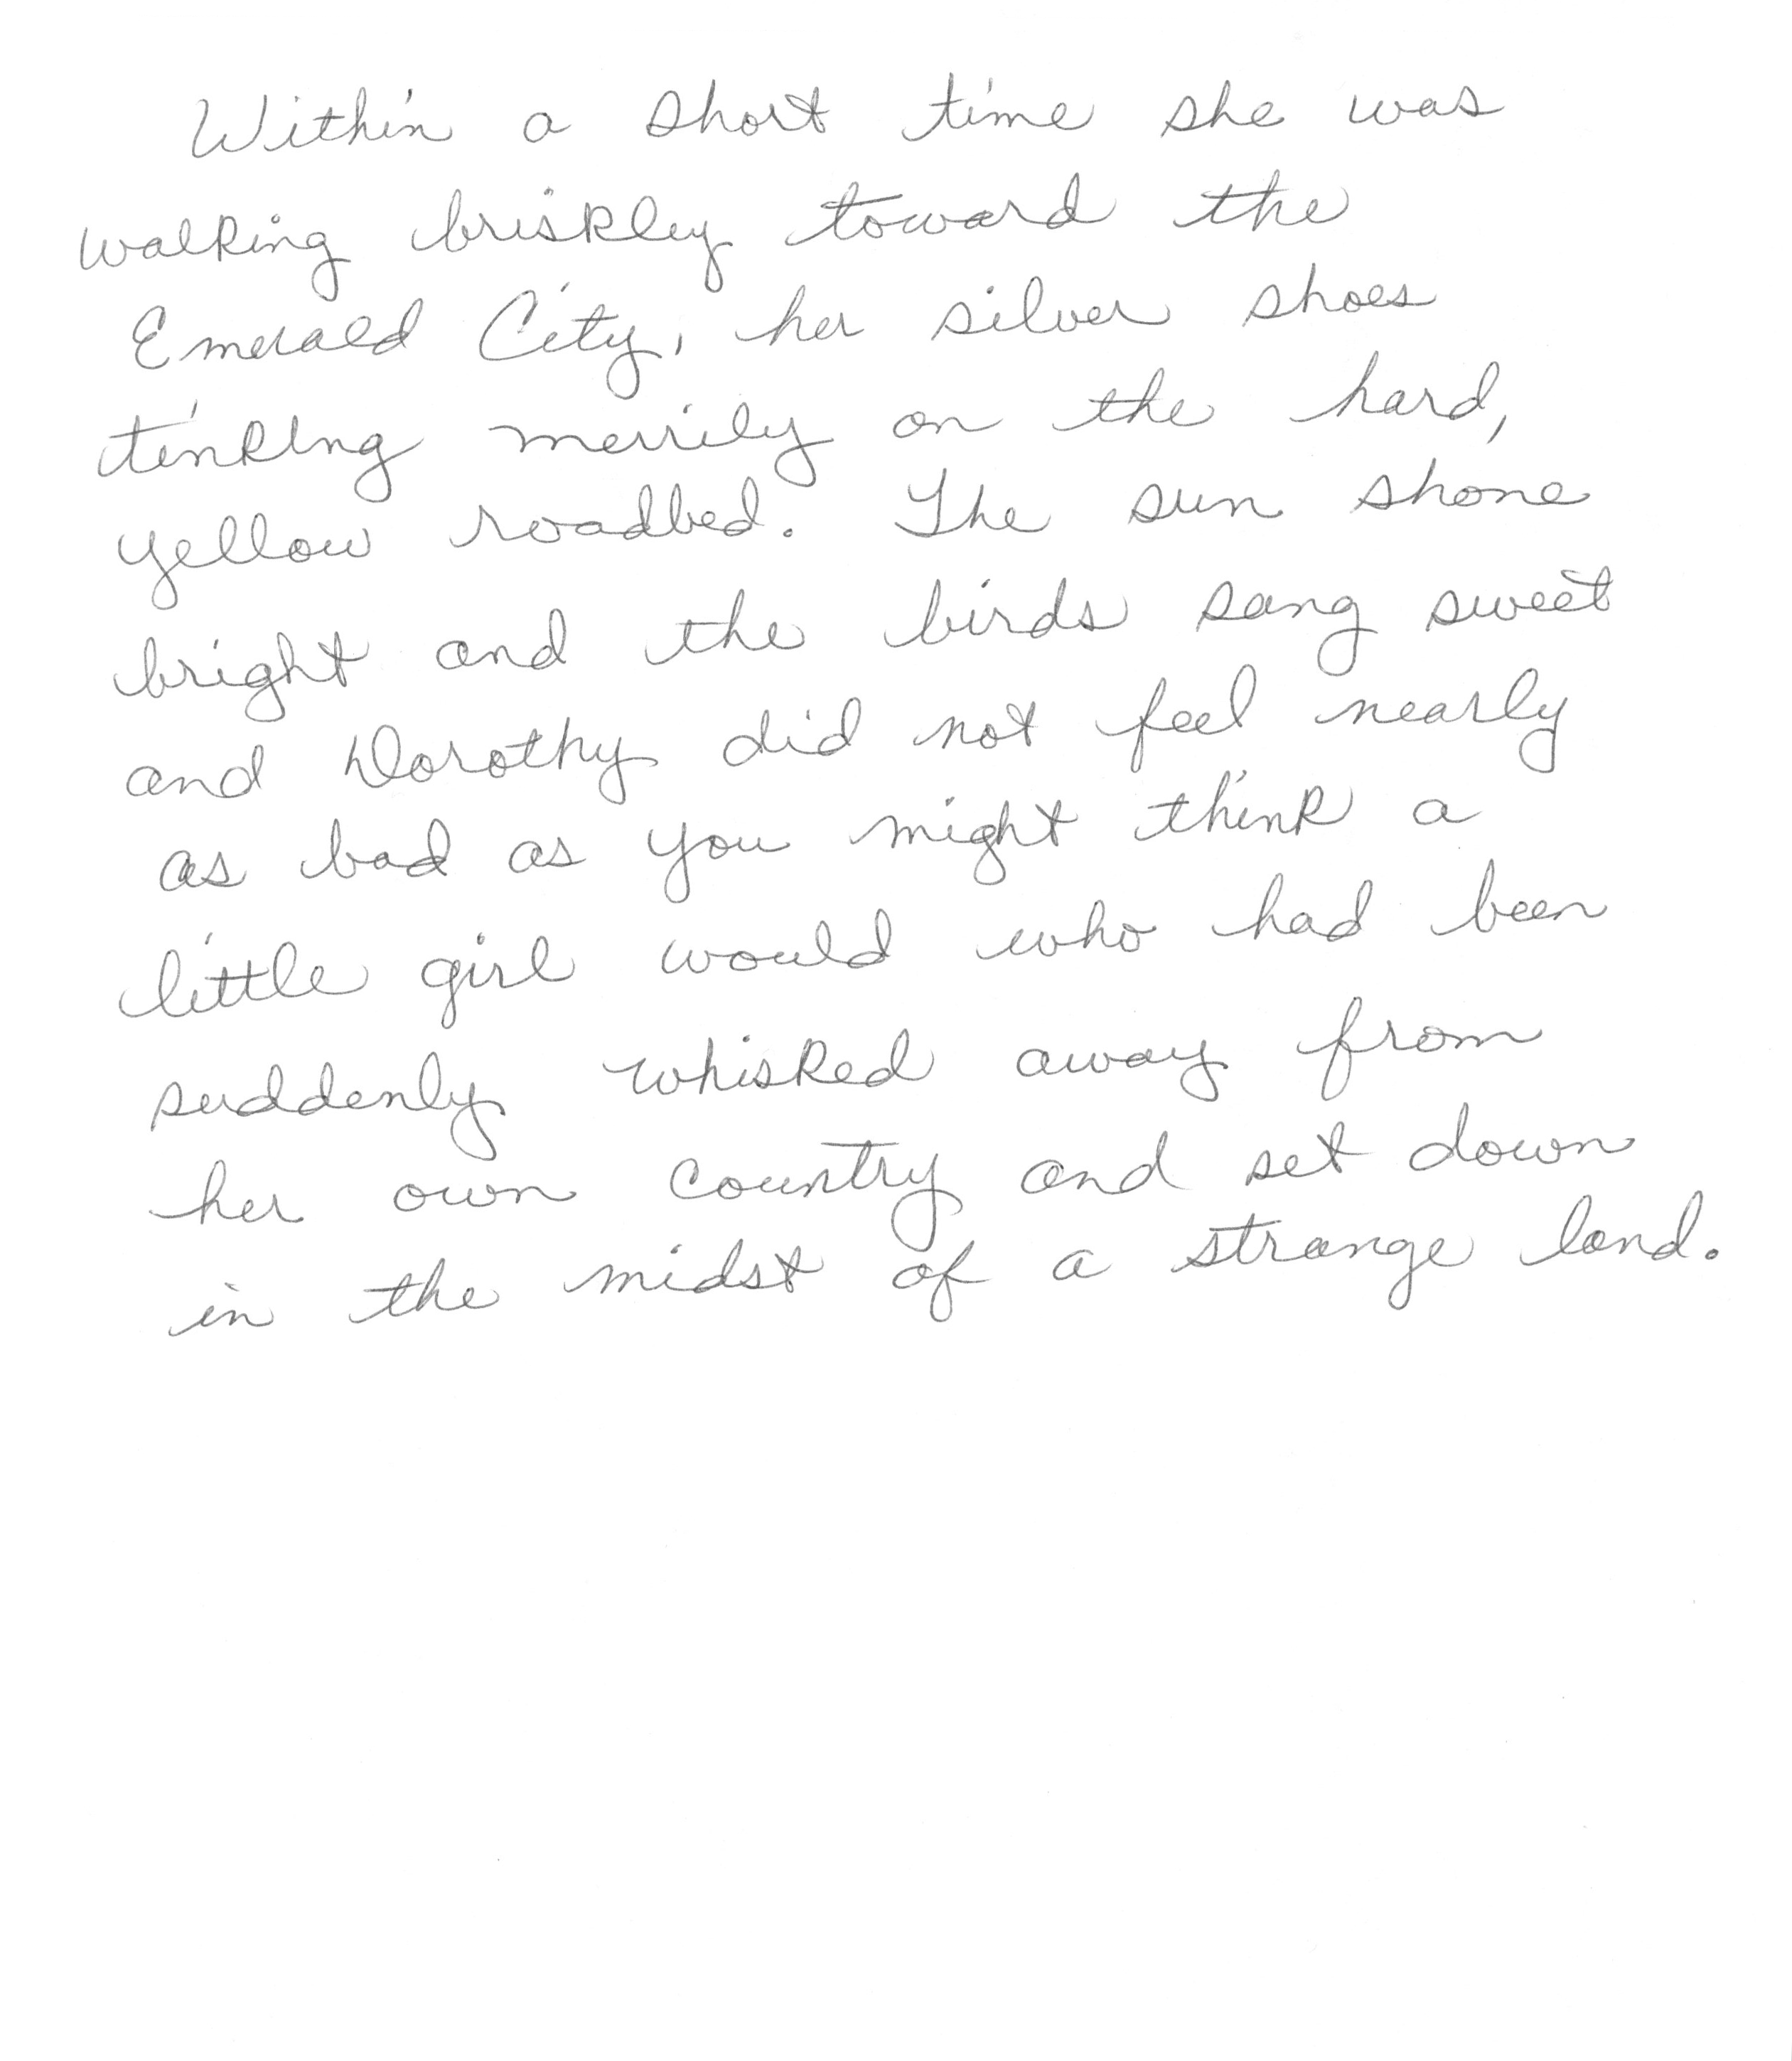 Within a short time she was
walking briskley toward the
Emerald City, her silver shoes
tinklng merrily on the hard,
yellow roadbed. The sun shone
bright and the birds sang sweet
and Dorothy did not feel nearly
as bad as you might think a
little girl would who had been
suddenly whisked away from
her own country and set down
in the midst of a strange land.